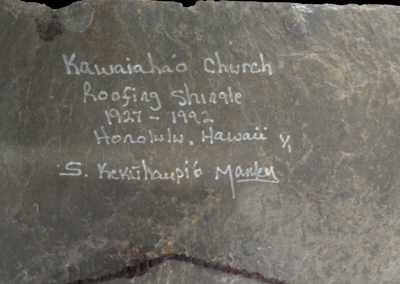 Kawaiaha'o Church
Roofing Shingle
1927 - 1992
Honolulu, Hawaii 1/1
S. Kekūhaupi'ō Manley